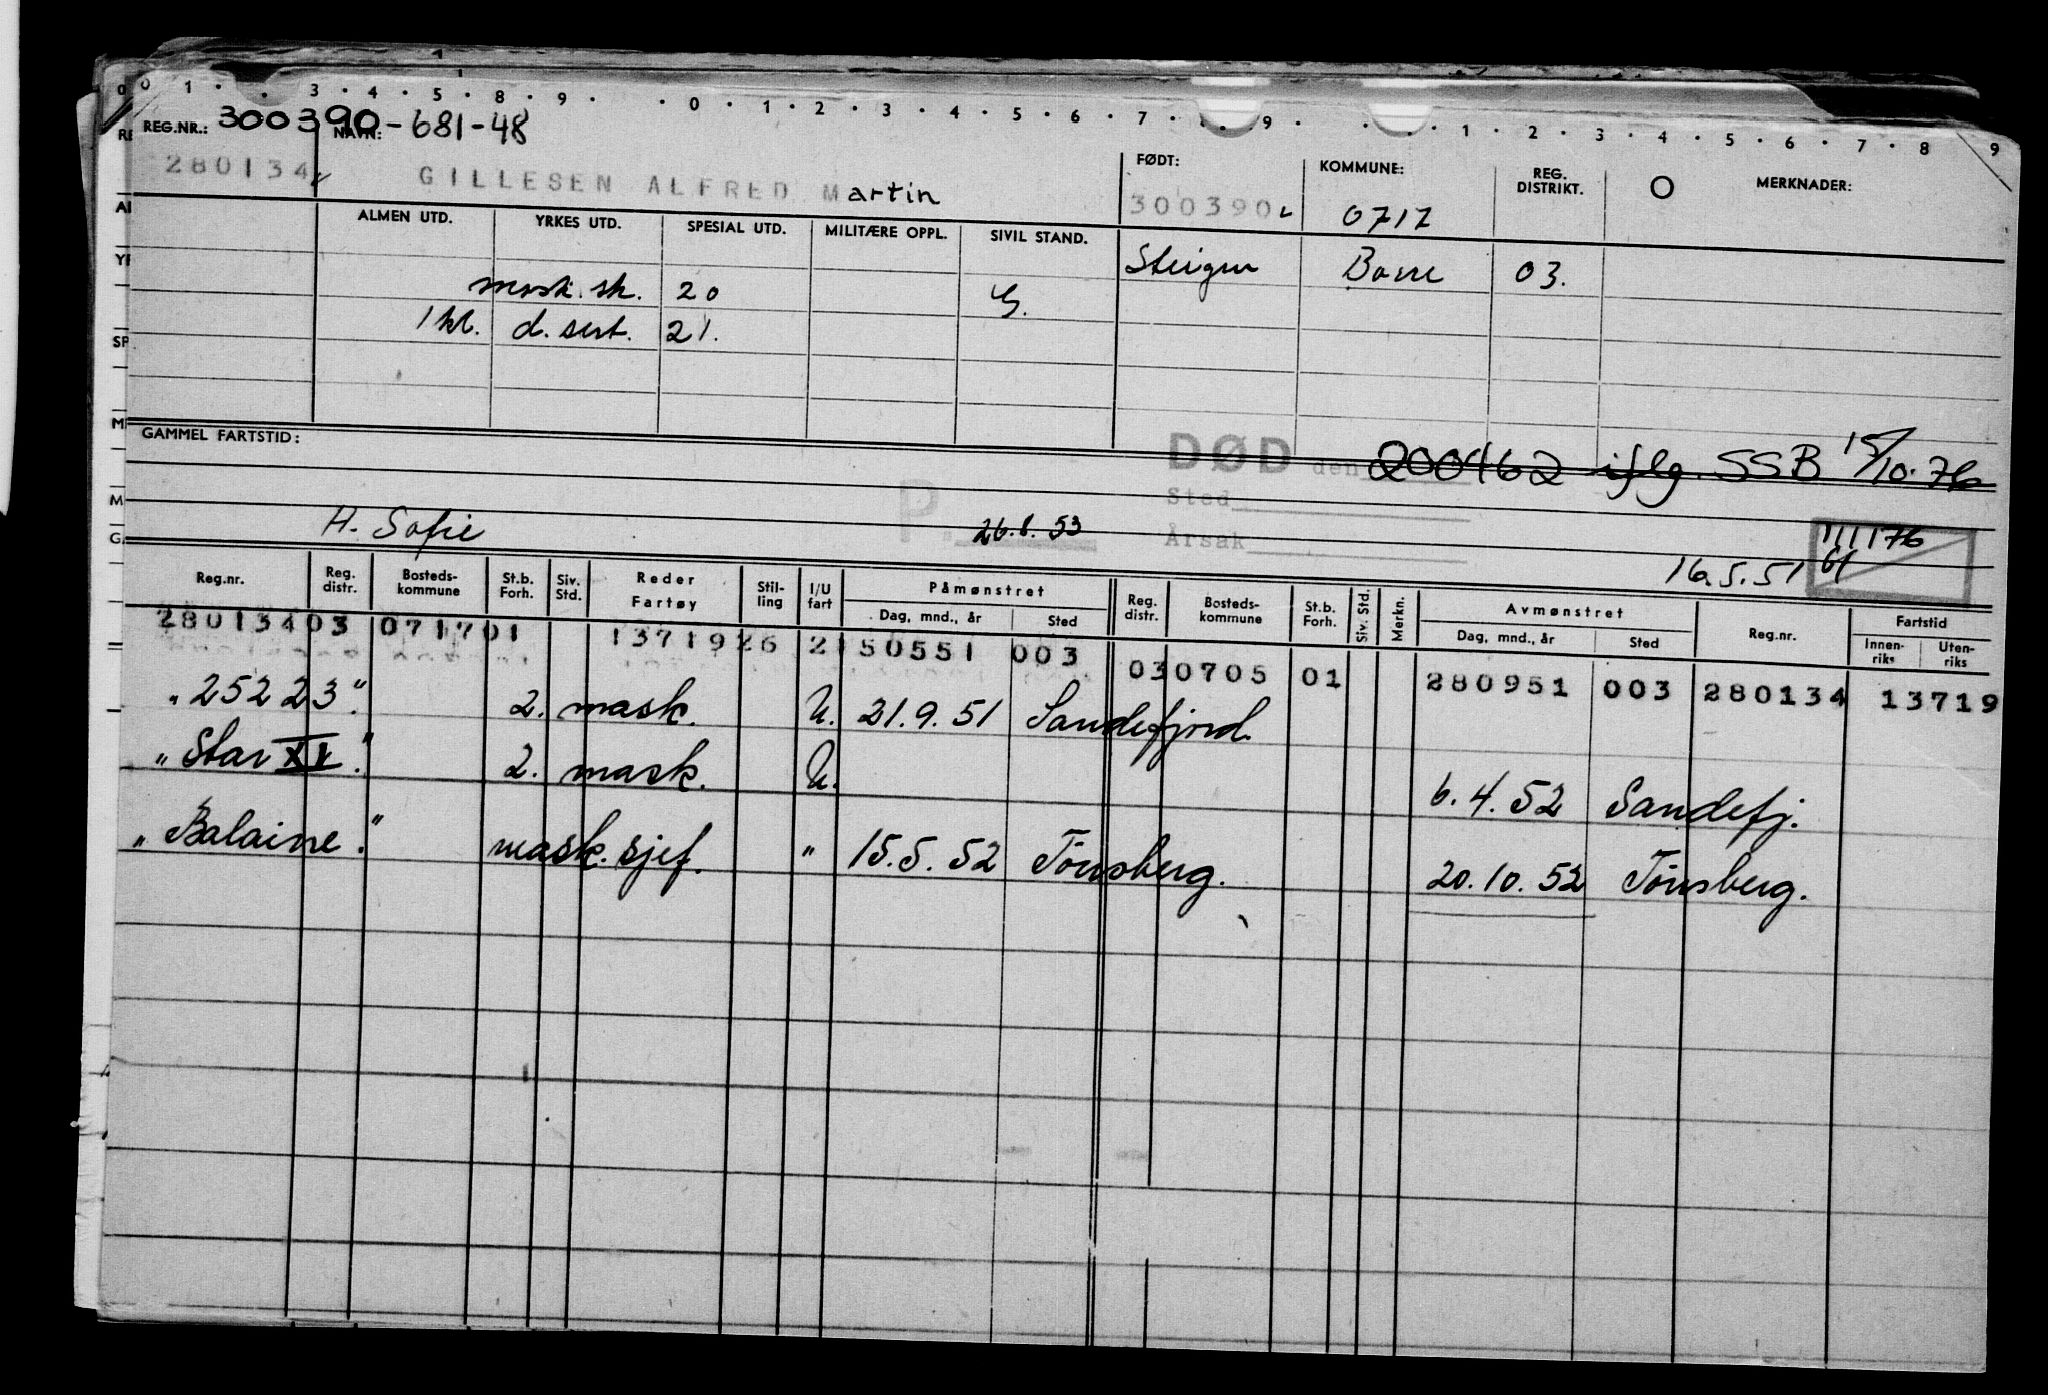 0 1 3 4 5 8 9 0 1 2 3 4 5 6 7 9 1 2 3 4 5 6 7 8 9
REG.NR.: 300390-681-48 NAVN:
280134 GILLESEN ALFRED Martin
FØDT: 300390
KOMMUNE: 0717
REG. DISTRIKT.
O MERKNADER:
ALMEN UTD. YRKES UTD. SPESIAL UTD. MILITÆRE OPPL. SIVIL STAND. Steigen Borre 03.
mask. sk. 20 G.
1 kl. d. sert. 21.
GAMMEL FARTSTID:
DØD den 200462 iflg. SSB 15/10.76
P. Sted
H. Sofie 26.8.53 Årsak
16.5.51 111176
Reg.nr. Reg. distr. Bosteds-kommune St.b. Forh. Siv. Std. Reder Fartøy Stil-ling I/U fart Påmønstret Dag, mnd., år Sted Reg. distr. Bosteds-kommune St.b. Forh. Siv. Std. Merkn. Avmønstret Dag, mnd., år Sted Reg.nr. Fartstid Innen-riks Uten-riks
280134 03 0717 01 1371926 2 150551 003 03 0705 01 280951 003 280134 13719
"25223". 2. mask. U. 21.9.51 Sandefjord.
"Star XV." 2. mask. U. 6.4.52 Sandefj.
"Balaine." mask.sjef. " 15.5.52 Tönsberg. 20.10.52 Tönsberg.